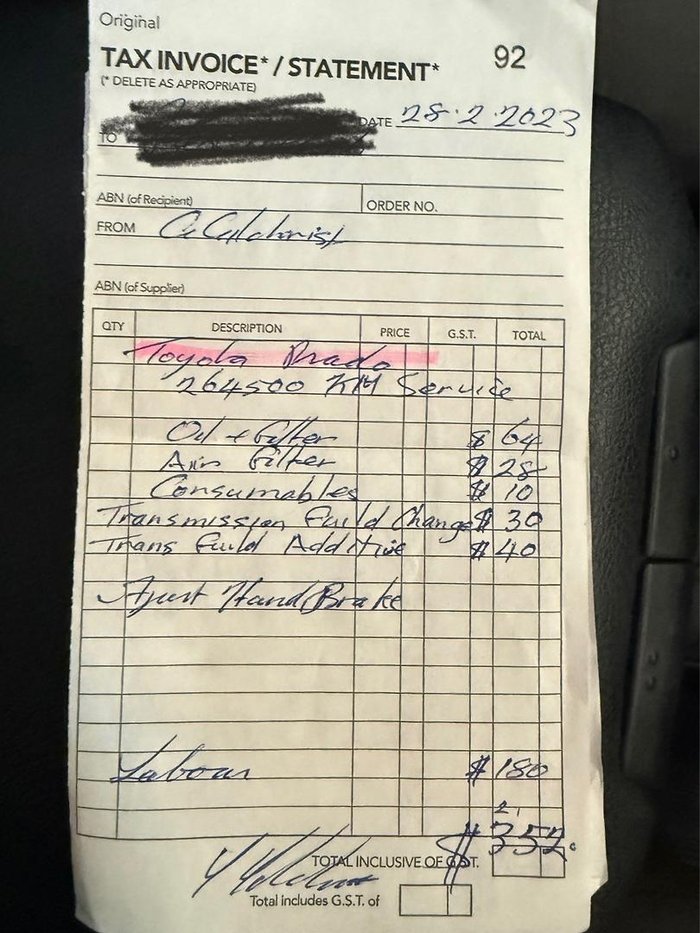 Original
TAX INVOICE* / STATEMENT* 92
(* DELETE AS APPROPRIATE)
DATE 28.2.2023
TO
ABN (of Recipient) ORDER NO.
FROM
ABN (of Supplier)
QTY DESCRIPTION PRICE G.S.T. TOTAL
Toyota Prado
264500 KM Service
Oil + filter $ 64
Air filter $ 28
Consumables $ 10
Transmission fuild Change $ 30
Trans fuild Additive $ 40
Ajust Hand Brake
Labour $ 180
21
$ 352
TOTAL INCLUSIVE OF G.S.T.
Total includes G.S.T. of